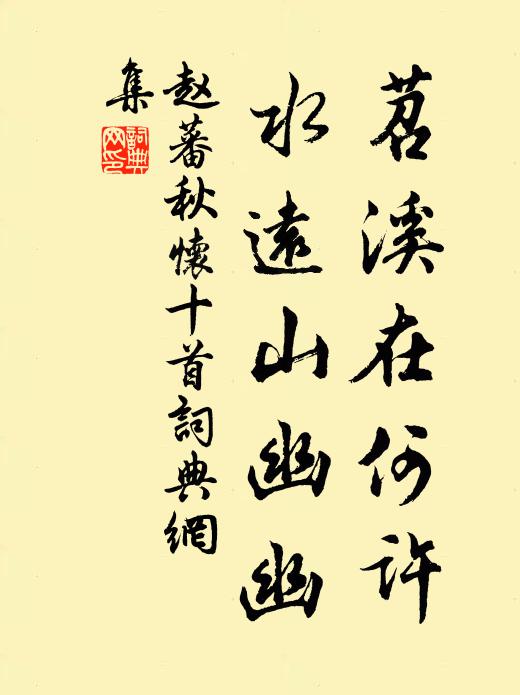 苕溪在何许
水遠山幽幽
赵蕃秋懷十首詞典網
集
詞典網印